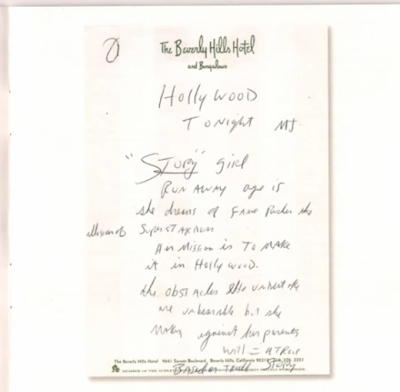 The Beverly Hills Hotel
and Bungalows
Hollywood
Tonight MJ.
"Story" girl
Run away age is
she dreams of Fame
Superstardom
Her Mission is To make
it in Hollywood.
the obstacles
are unbearable but she
against her parents
will = A True
The Beverly Hills Hotel 9641 Sunset Boulevard, Beverly Hills, California
Based on Story